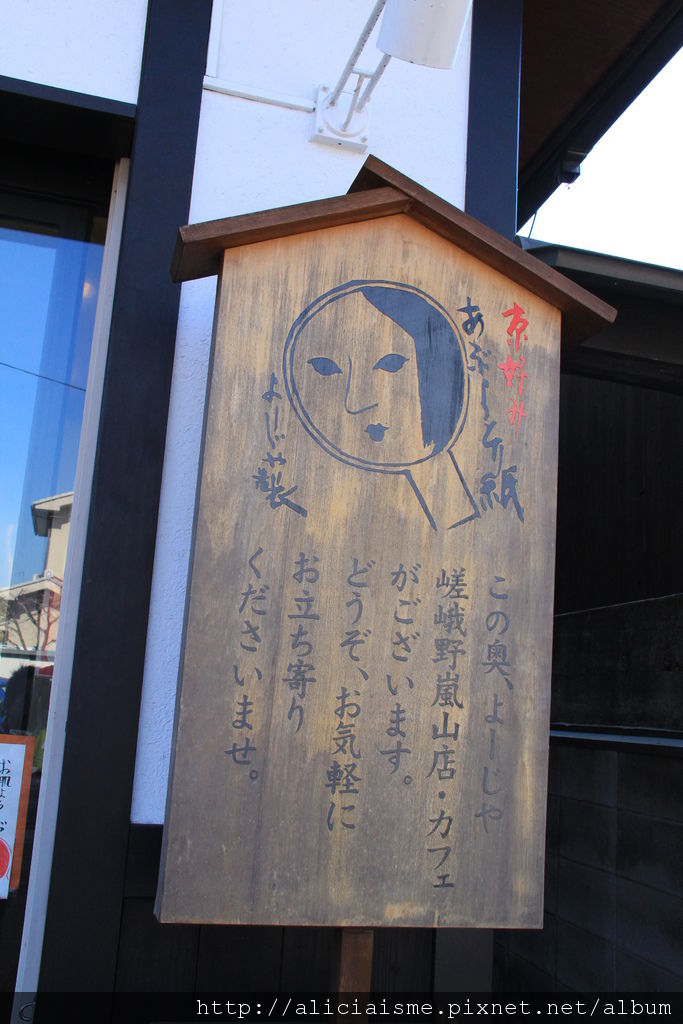 京好み
あぶらとり紙
よーじや製
この奥、よーじや
嵯峨野嵐山店・カフェ
がございます。
どうぞ、お気軽に
お立ち寄り
くださいませ。
http://aliciaisme.pixnet.net/album